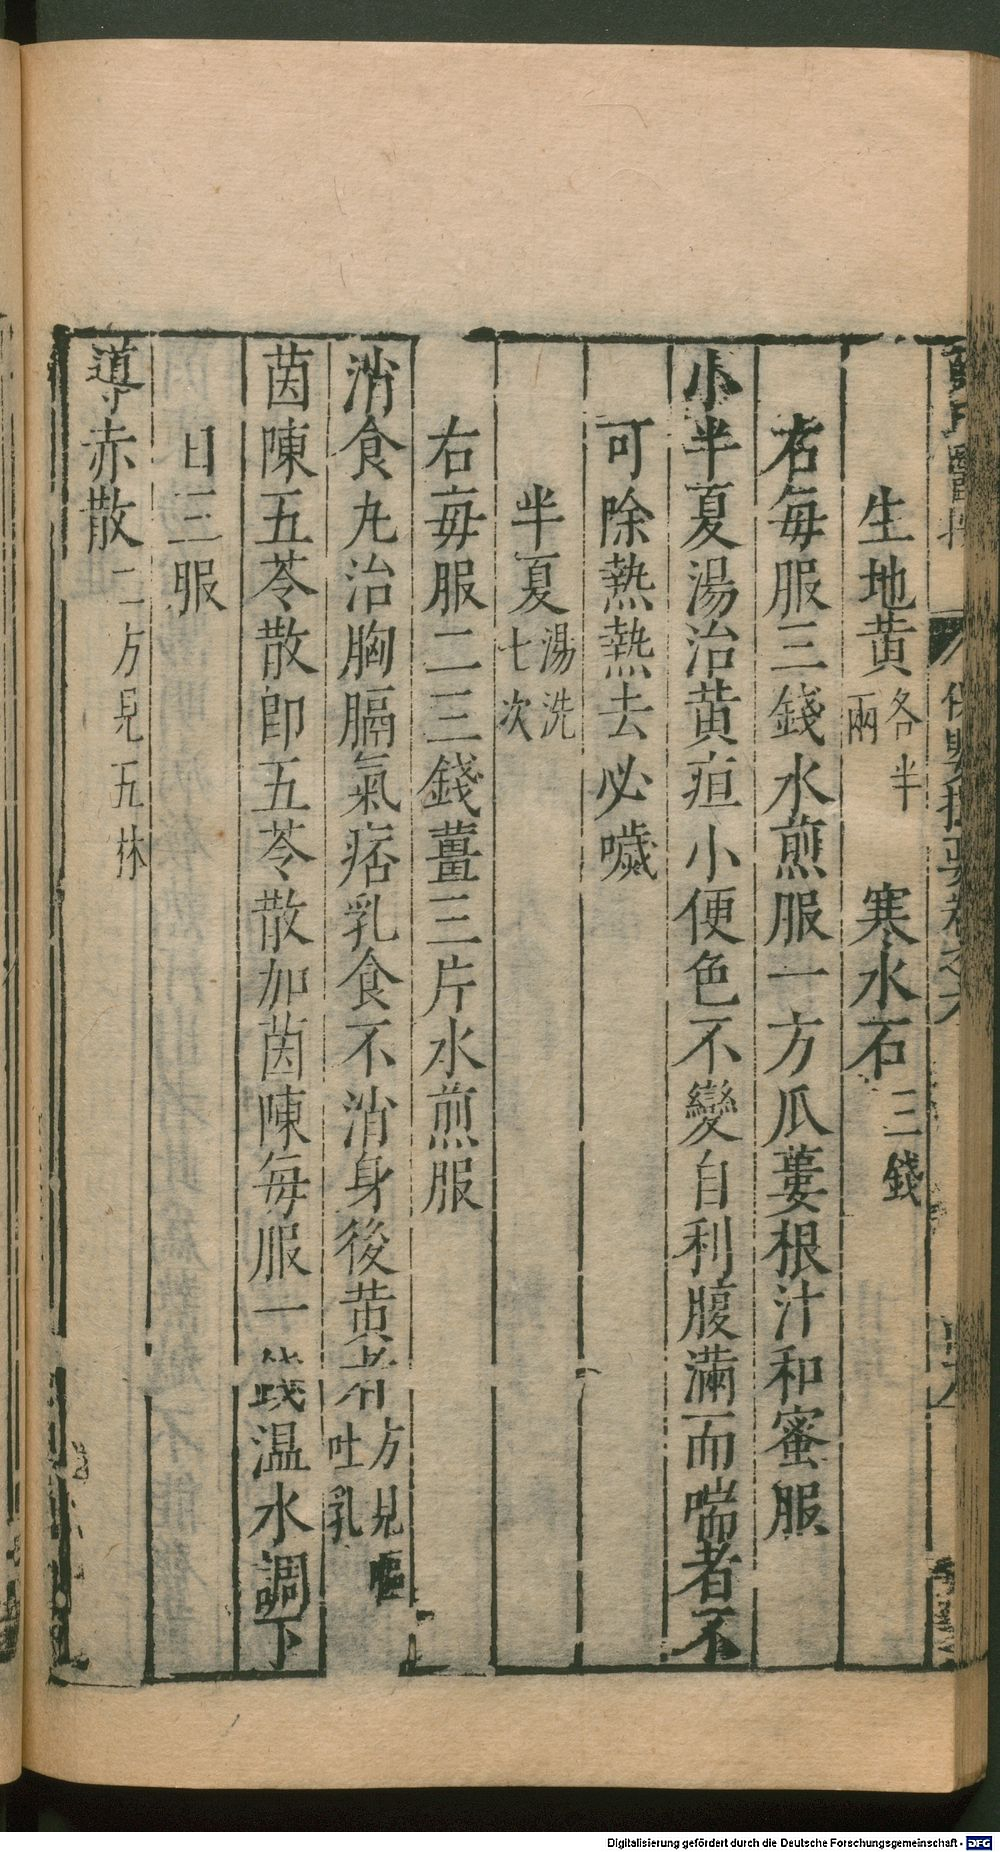 生地黃各半兩　寒水石三錢
右每服三錢水煎服一方瓜蔞根汁和蜜服
小半夏湯治黃疸小便色不變自利腹滿而喘者不
可除熱熱去必噦
半夏湯洗七次
右每服二三錢薑三片水煎服
消食丸治胸膈氣痞乳食不消身後黃者方見嘔吐乳
茵陳五苓散即五苓散加茵陳每服一錢溫水調下
日三服
導赤散二方見五淋
保嬰撮要卷之六
Digitalisierung gefördert durch die Deutsche Forschungsgemeinschaft - DFG